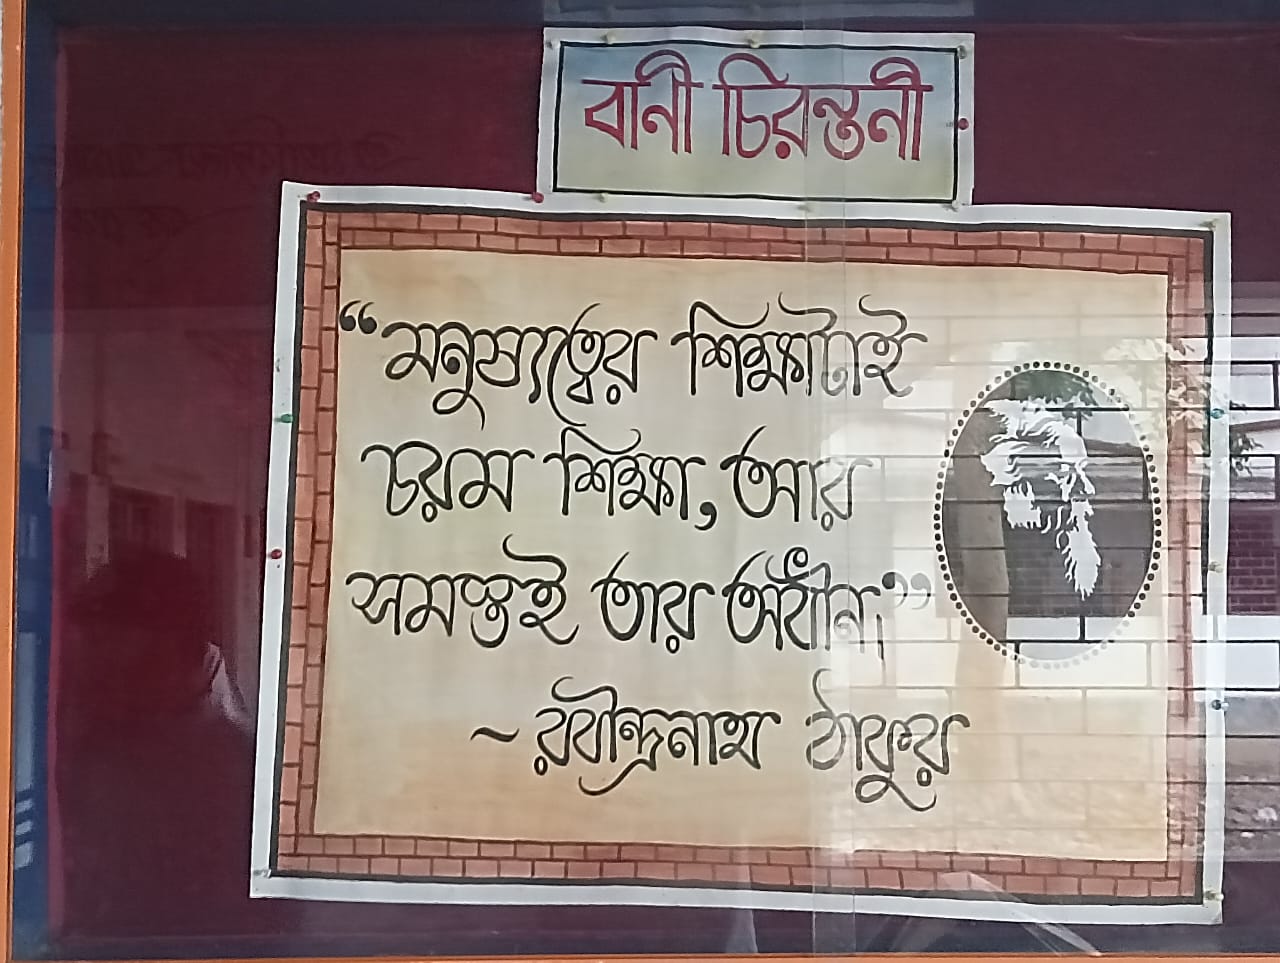 বানী চিরন্তনী
“মনুষ্যত্বের শিক্ষাটাই
চরম শিক্ষা, আর
সমস্তই তার অধীন।”
~ রবীন্দ্রনাথ ঠাকুর